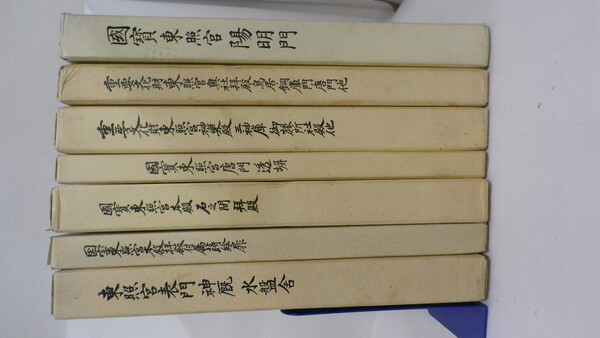 國寳東照宮陽明門
重要文化財東照宮奥社拝殿鳥居銅庫門唐門他
重要文化財東照宮神輿殿三神庫御旅所社殿他
國寳東照宮唐門透塀
國寳東照宮本殿石之間拝殿
国宝東照宮本殿拝殿付属
東照宮表門神厩水盤舎